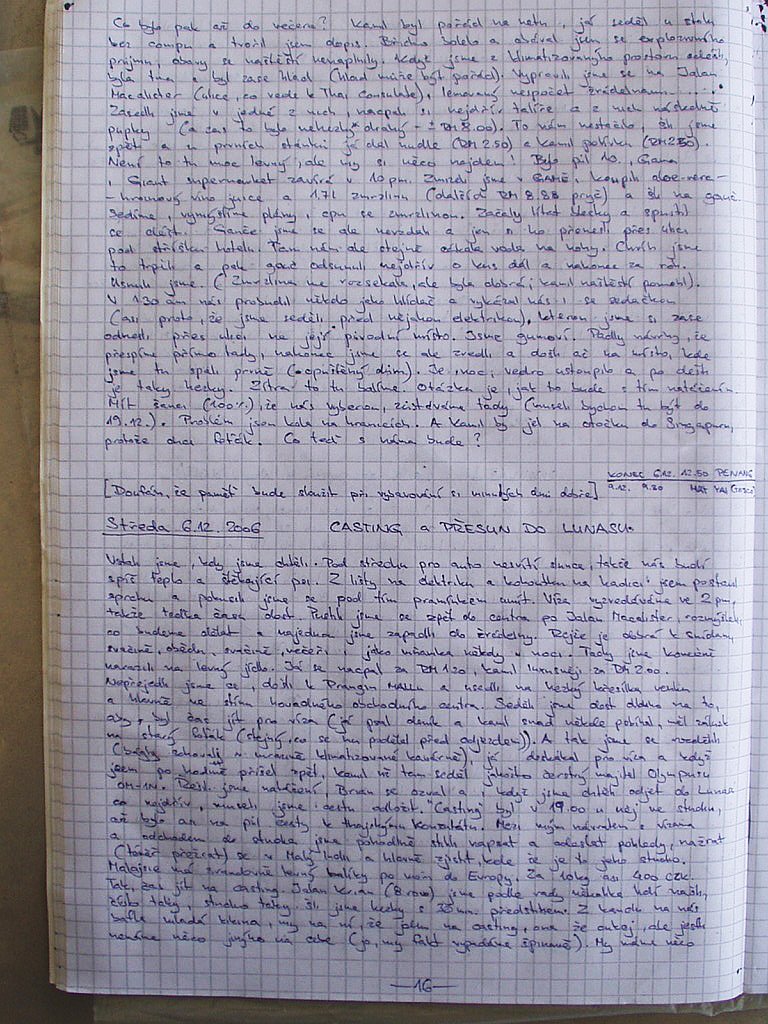 Co bylo pak až do večera? Kamil byl pořád na netu, já seděl u stolu
bez compu a tvořil jsem dopis. Břicho bolelo a obával jsem se explozivního
průjmu, obavy se naštěstí nenaplnily. Když jsme z klimatizovaného prostoru odešli,
byla tma a byl zase hlad (hlad může být pořád). Vypravili jsme se na Jalan
Macalister (ulice, co vede k Thai. consulate), lemovaný nespočet žrádelnami.....
Zasedli jsme v jedné z nich, nacpali si nejdřív talíře a z nich následně
pupky (a zas to bylo nehezky drahý - ± RM 8.00). To nám nestačilo, šli jsme
zpět a u prvních stánků já dal nudle (RM 2.50) a Kamil polívku (RM 2.50).
Není to tu moc levný, ale my si něco najdem! Bylo půl 10, Gama
i Giant supermarket zavírá v 10 pm. Zmrzli jsme v GAMĚ. Koupili aloe-vera-
-hroznový víno juice a 1.4l zmrzlinu (dalších RM 8.88 pryč) a šli na gauč.
Sedíme, vymýšlíme plány, cpem se zmrzlinou. Začaly lítat blesky a spustil
se déšť. Gauče jsme se ale nevzdali a jen si ho přenesli přes ulici
pod stříšku hotelu. Tam nám ale stejně stékala voda na nohy. Chvíli jsme
to trpěli a pak gauč odsunuli nejdřív o kus dál a nakonec za roh.
Usnuli jsme. (Zmrzlina mě rozsekala, ale byla dobrá; Kamil naštěstí pomohl).
V 1:30 am nás probudil někdo jako hlídač a vykázal nás i se sedačkou
(asi proto, že jsme seděli před nějakou elektrikou), kterou jsme si zase
odnesli přes ulici na její původní místo. Jsme gumoví. Padly návrhy, že
přespíme přímo tady, nakonec jsme se ale zvedli a došli až na místo, kde
jsme tu spali prvně (opuštěný dům). Je noc, vedro ustoupilo a po dešti
je taky hezky. Zítra to tu balíme. Otázka je, jak to bude s tím natáčením.
Mít šanci (100%), že nás vyberou, zůstáváme tady (museli bychom tu být do
19.12.). Problém jsou kola na hranicích. A Kamil by jel na otočku do Singapuru,
protože chce foťák. Co teď s náma bude?
KONEC 6.12. 12.50 PENANG
[Doufám, že paměť bude sloužit při vybavování si minulých dní dobře] 9.12. 9.20 HAT YAI
Středa 6.12. 2006 CASTING a PŘESUN DO LUNASU.
Vstali jsme, kdy jsme chtěli. Pod stříšku pro auto nesvítí slunce, takže nás budí
spíš teplo a štěkající psi. Z lišty na elektriku a kohoutku na hadici jsem postavil
sprchu a pokusili jsme se pod tím pramínkem umýt. Víza vyzvedáváme ve 2 pm,
takže teďka času dost. Pustili jsme se zpět do centra po Jalan Macalister, rozmýšleli,
co budeme dělat a najednou jsme zapadli do žrádelny. Rejže je dobrá k snídani,
svačině, obědu, svačině, večeři i jako mňamka někdy v noci. Tady jsme konečně
narazili na levný jídlo. Já se nacpal za RM 1.20, Kamil luxusněji za RM 2.00.
Nepřejedli jsme se, došli k Prangin MALLu a usedli na hezký křesílka venku
a hlavně na stínu hovadného obchodního centra. Seděli jsme dost dlouho na to,
aby byl čas jít pro víza (já psal deník a Kamil snad někde pobíhal, měl zálusk
na starý foťák (stejný, co se mu podělal před odjezdem)). A tak jsme se rozdělili
(bágly zchovali v mrazně klimatizované kavárně), já došlapal pro víza a když
jsem po hodině přišel zpět, Kamil už tam seděl jakožto čerstvý majitel Olympusu
OM-1N. Řešili jsme natáčení, Brian se ozval a i když jsme chtěli odjet do Lunasu
co nejdřív, museli jsme cestu odložit. "Casting" byl v 19.00 u něj ve studiu,
až bylo asi na půl cesty k thajskému konzulátu. Mezi mým návratem s vízama
a odchodem do studia jsme pohodlně stihli napsat a odeslat pohledy, nažrat
(totiž přežrat) se v Malý Indii a hlavně zjistit, kde že je to jeho studio.
Malajsie má srandovně levný balíky po moři do Evropy. Za 10kg asi 400 CZK.
Tak, čas jít na casting. Jalan Krian (8 row) jsme podle rady několika lidí našli,
číslo taky, studio taky. Šli jsme hezky s 35 min. předstihem. Z kanclu na nás
bafla mladá kikina, my na ní, že jdem na casting, ona že oukej, ale jestli
nemáme něco jinýho na sebe (jo, my fakt vypadáme špinavě). My máme něco
—16—